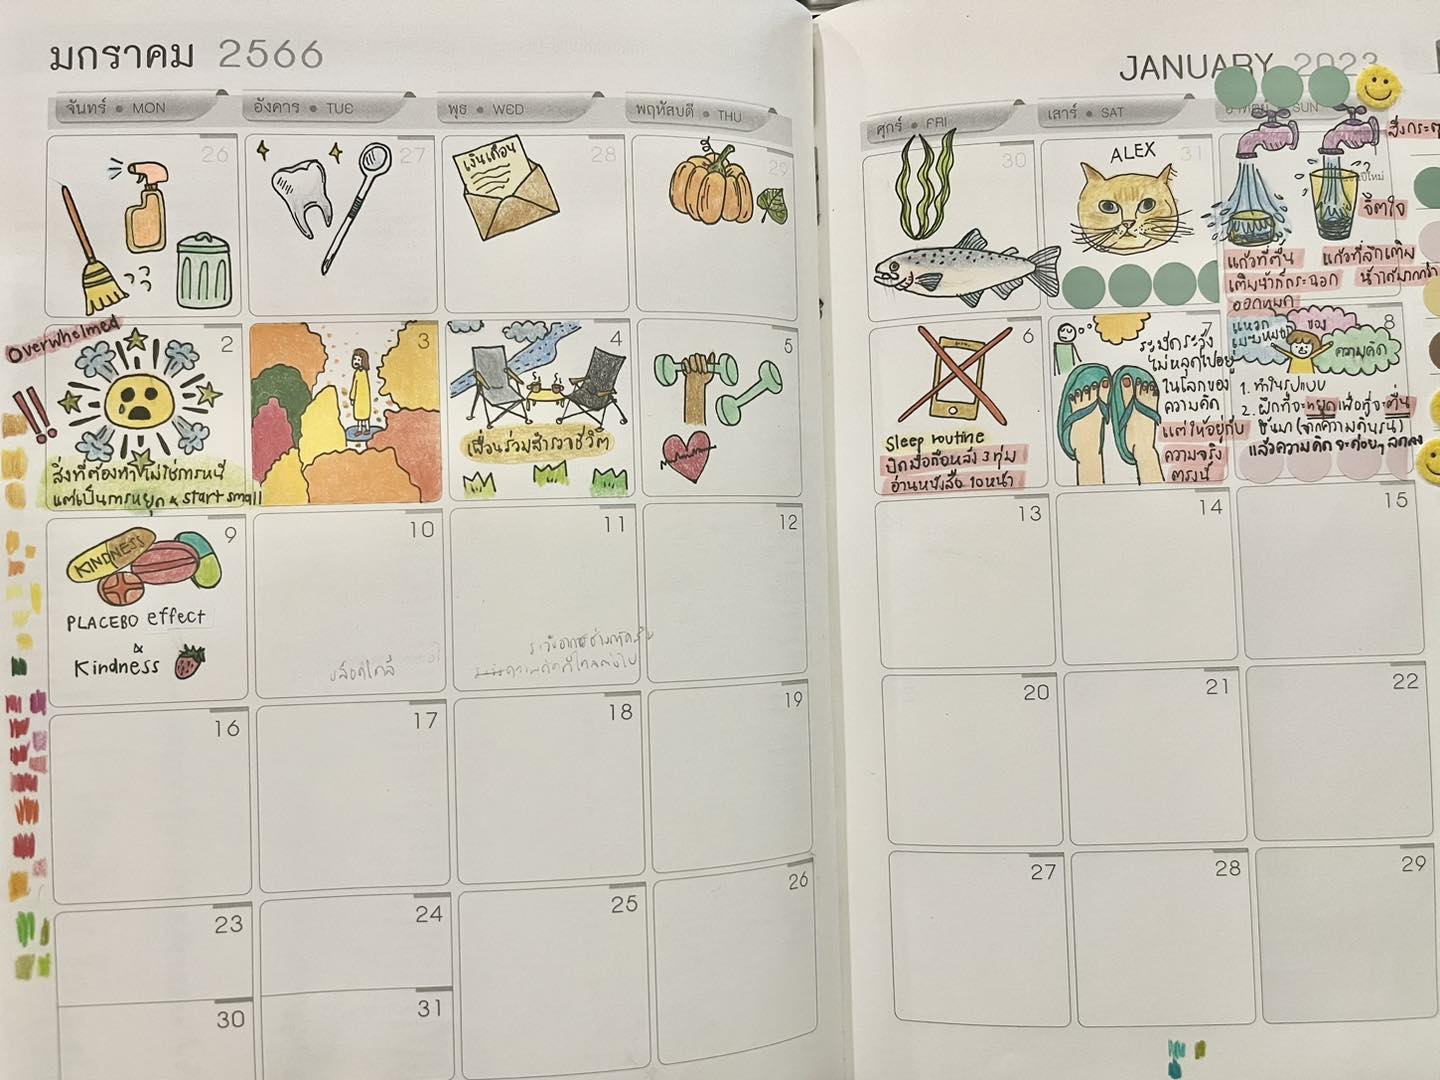 มกราคม 2566
JANUARY 2023
จันทร์ • MON
อังคาร • TUE
พุธ • WED
พฤหัสบดี • THU
ศุกร์ • FRI
เสาร์ • SAT
SUN
26
27
เงินเดือน
28
29
30
ALEX
31
จิตใจ
แก้วที่ตื้น
เติมน้ำก็กระฉอก
ออกหมด
แก้วที่ลึกเติม
น้ำได้มากกว่า
Overwhelmed
!!
2
สิ่งที่ต้องทำไม่ใช่การหนี
แต่เป็นการหยุด & start small
3
4
เพื่อนร่วมสำรวจชีวิต
5
6
Sleep routine
ปิดมือถือหลัง 3 ทุ่ม
อ่านหนังสือ 10 หน้า
ระมัดระวัง
ไม่หลุดไปอยู่
ในโลกของ
ความคิด
แต่ให้อยู่กับ
ความจริง
ตรงนี้
8
แหวก
ของ
ความคิด
1. ทำในรูปแบบ
2. ฝึกที่จะหยุดเพื่อที่จะตื่น
ขึ้นมา (จากความคิดนั้น)
แล้วความคิดจะค่อยๆ ลดลง
9
KINDNESS
PLACEBO effect
&
Kindness
10
11
12
13
14
15
16
17
18
19
20
21
22
23
24
25
26
27
28
29
30
31